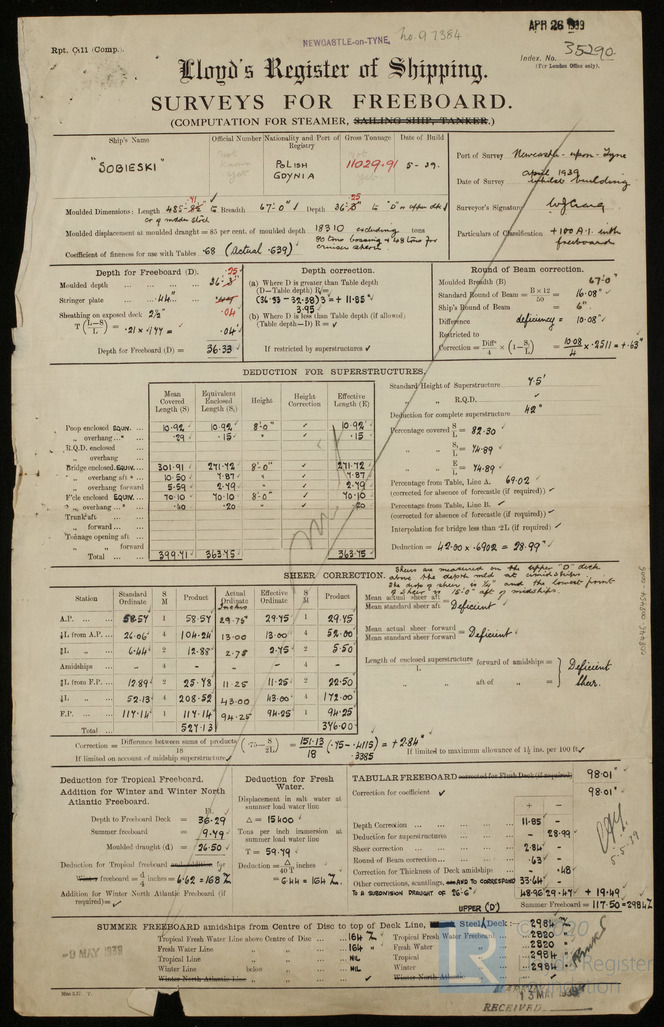 APR 26 1939
Rpt. C.11 (Comp.).
NEWCASTLE-on-TYNE.
No. 97384
Index. No. 35290
(For London Office only).
Lloyd's Register of Shipping.
SURVEYS FOR FREEBOARD.
(COMPUTATION FOR STEAMER, SAILING SHIP, TANKER.)
Ship's Name
Official Number
Nationality and Port of Registry
Gross Tonnage
Date of Build
"SOBIESKI"
POLISH
GDYNIA
11029.91
5-39.
Port of Survey Newcastle-upon-Tyne
Date of Survey April 1939 whilst building
Surveyor's Signature
Particulars of Classification +100 A.1. with freeboard
Moulded Dimensions: Length 485- Breadth 67'-0" Depth 36- to "D" or upper dk
Moulded displacement at moulded draught = 85 per cent. of moulded depth 18310 excluding tons
80 tons bossing & 48 tons for cruiser stern.
Coefficient of fineness for use with Tables .68 (Actual .639)
Depth for Freeboard (D).
Moulded depth ... 36.25
Stringer plate ... .44" .04
Sheathing on exposed deck 2½"
T (L-S/L) = .21 x .177 = .04
Depth for Freeboard (D) = 36.33
Depth correction.
(a) Where D is greater than Table depth
(D—Table depth) R =
(36.33 - 32.38) 3 = + 11.85"
3.95
(b) Where D is less than Table depth (if allowed)
(Table depth—D) R =
If restricted by superstructures
Round of Beam correction.
Moulded Breadth (B) 67'-0"
Standard Round of Beam = B×12/50 = 16.08"
Ship's Round of Beam = 6"
Difference deficiency = 10.08"
Restricted to
Correction = Diff/4 × (1 - S₁/L) = 10.08/4 x .2511 = +.63"
DEDUCTION FOR SUPERSTRUCTURES.
Mean Covered Length (S)
Equivalent Enclosed Length (S₁)
Height
Height Correction
Effective Length (E)
Poop enclosed EQUIV. ... 10.92 10.92 8'-0" 10.92
„ overhang ... .29 .15 .15
R.Q.D. enclosed
„ overhang
Bridge enclosed EQUIV. 301.91 271.72 8'-0" 271.72
„ overhang aft 10.50 7.87 7.87
„ overhang forward 5.59 2.79 2.79
F'cle enclosed EQUIV. 70.10 70.10 8'-0" 70.10
„ overhang ... .40 .20 .20
Trunk aft
„ forward ...
Tonnage opening aft
„ „ forward
Total ... 399.71 363.75 363.75
Standard Height of Superstructure 7.5'
„ „ R.Q.D.
Deduction for complete superstructure 42"
Percentage covered S/L = 82.30
„ „ S₁/L = 74.89
„ „ E/L = 74.89
Percentage from Table, Line A. 69.02
(corrected for absence of forecastle (if required))
Percentage from Table, Line B.
(corrected for absence of forecastle (if required))
Interpolation for bridge less than ·2L (if required)
Deduction = 42.00 x .6902 = 28.99"
SHEER CORRECTION.
Sheers are measured on the upper "D" deck
above the depth mld at amidships.
and the lowest point
of sheer is 15'-0" aft of midships.
Station
Standard Ordinate
S M
Product
Actual Ordinate Inches
Effective Ordinate
S M
Product
A.P. ... 58.57 1 58.57 29.75 29.75 1 29.75
⅙L from A.P. ... 26.06 4 104.24 13.00 13.00 4 52.00
⅓L „ 6.44 2 12.88 2.75 2.75 2 5.50
Amidships ... - 4 - - - 4 -
⅓L from F.P. ... 12.89 2 25.78 11.25 11.25 2 22.50
⅙L „ 52.13 4 208.52 43.00 43.00 4 172.00
F.P. ... 117.14 1 117.14 94.25 94.25 1 94.25
Total ... 527.13 376.00
Mean actual sheer aft / Mean standard sheer aft = Deficient
Mean actual sheer forward / Mean standard sheer forward = Deficient
Length of enclosed superstructure / L forward of amidships =
„ „ aft of „ =
Deficient sheer.
Correction = Difference between sums of products / 18 (·75 - S/2L) = 151.13/18 (.75 - .4115) = + 2.84"
.3385
If limited on account of midship superstructure.
If limited to maximum allowance of 1½ ins. per 100 ft.
Deduction for Tropical Freeboard.
Addition for Winter and Winter North Atlantic Freeboard.
Ft.
Depth to Freeboard Deck = 36.29
Summer freeboard = 9.79
Moulded draught (d) = 26.50
Deduction for Tropical freeboard and addition for
Winter freeboard = d/4 inches = 6.62 = 168 %
Addition for Winter North Atlantic Freeboard (if required) =
Deduction for Fresh Water.
Displacement in salt water at summer load water line
Δ = 15400
Tons per inch immersion at summer load water line
T = 59.79
Deduction = Δ/40 T
= 6.44 = 164 %
TABULAR FREEBOARD corrected for Flush Deck (if required) 98.01"
Correction for coefficient 98.01"
+ -
Depth Correction ... 11.85 -
Deduction for superstructures ... - 28.99
Sheer correction ... 2.84 -
Round of Beam correction ... .63 -
Correction for Thickness of Deck amidships ... - .48
Other corrections, scantlings, AND TO CORRESPOND 33.64 -
TO A SUBDIVISION DRAUGHT OF 26'6" 48.96 29.47 + 19.49
Summer Freeboard = 117.50 = 2984 %
5.5.39
UPPER (D)
SUMMER FREEBOARD amidships from Centre of Disc to top of Deck Line, Steel Deck:— 2984 %
Tropical Fresh Water Line above Centre of Disc ... 164 %
Fresh Water Line „ „ ... 164 "
Tropical Line „ „ ... NIL
Winter Line below „ ... NIL
Winter North Atlantic Line „ „
Tropical Fresh Water Freeboard 2820
Fresh Water „ 2820
Tropical „ 2984
Winter „ 2984
Winter North Atlantic „
-9 MAY 1939
13 MAY 1939
RECEIVED
© 2020
LR
Lloyd's Register
Foundation